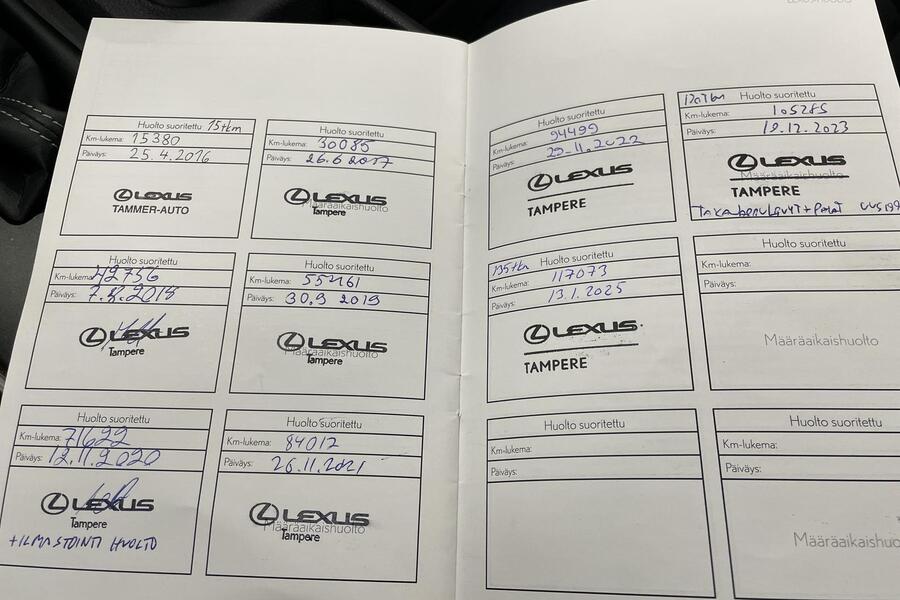 Huolto suoritettu 15tkm
Km-lukema: 15380
Päiväys: 25.4.2016
LEXUS
TAMMER-AUTO
Huolto suoritettu
Km-lukema: 30085
Päiväys: 26.6 2017
LEXUS
Määräaikaishuolto
Tampere
Huolto suoritettu
Km-lukema: 42756
Päiväys: 7.8.2018
LEXUS
Tampere
Huolto suoritettu
Km-lukema: 55461
Päiväys: 30.9 2019
LEXUS
Määräaikaishuolto
Tampere
Huolto suoritettu
Km-lukema: 71622
Päiväys: 12.11.2020
LEXUS
Tampere
+ILMASTOINTI HUOLTO
Huolto suoritettu
Km-lukema: 84012
Päiväys: 26.11.2021
LEXUS
Määräaikaishuolto
Tampere
Huolto suoritettu
Km-lukema: 94499
Päiväys: 29.11.2022
LEXUS
TAMPERE
Huolto suoritettu
Km-lukema: 105285
Päiväys: 19.12.2023
LEXUS
Määräaikaishuolto
TAMPERE
135tkm Huolto suoritettu
Km-lukema: 117073
Päiväys: 13.1.2025
LEXUS
TAMPERE
Huolto suoritettu
Km-lukema:
Päiväys:
Määräaikaishuolto
Huolto suoritettu
Km-lukema:
Päiväys:
Huolto suoritettu
Km-lukema:
Päiväys: